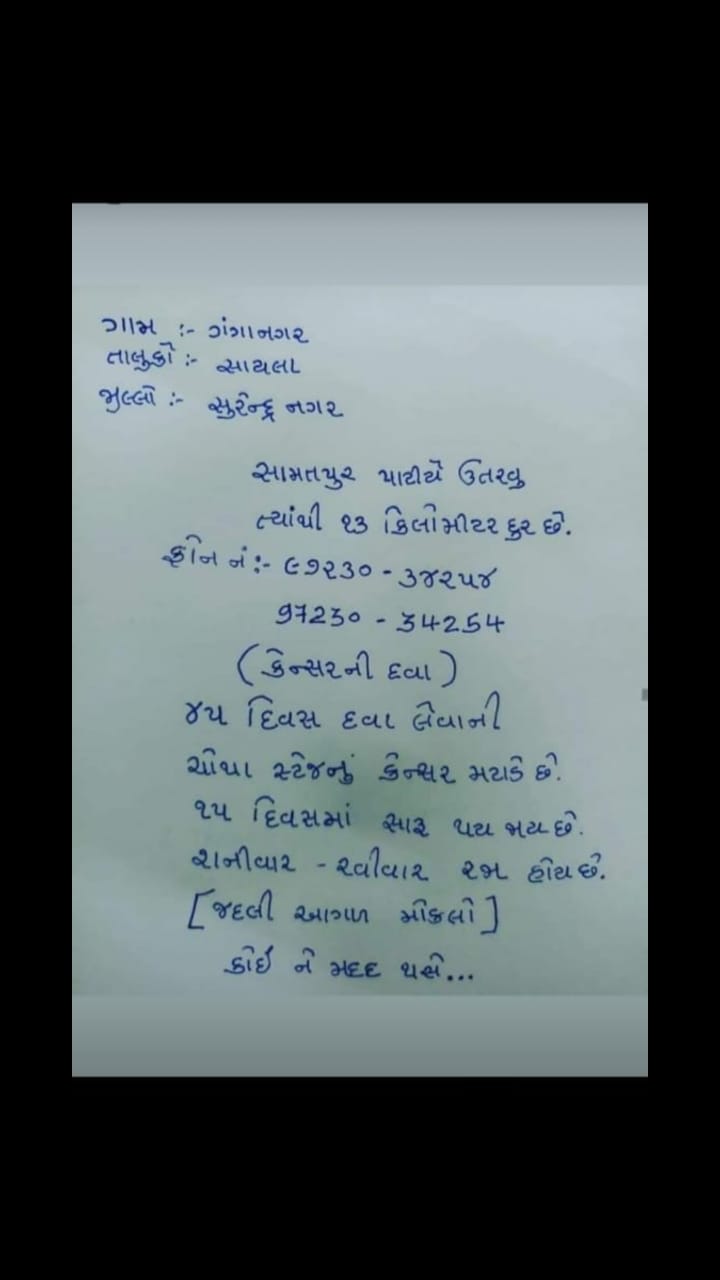 ગામ :- ગંગાનગર
તાલુકો :- સાયલા
જીલ્લો :- સુરેન્દ્રનગર
સામતપુર પાટીયે ઉતરવુ
ત્યાંથી ૧૩ કિલોમીટર દુર છે.
ફોન નં:- ૯૭૨૩૦ - ૩૪૨૫૪
97230 - 34254
(કેન્સરની દવા)
૪૫ દિવસ દવા લેવાની
ચોથા સ્ટેજનું કેન્સર મટાડે છે.
૧૫ દિવસમાં સારૂ થય જાય છે.
શનીવાર - રવીવાર રજા હોય છે.
[જદલી આગળ મોકલો]
કોઈ ને મદદ થસે...